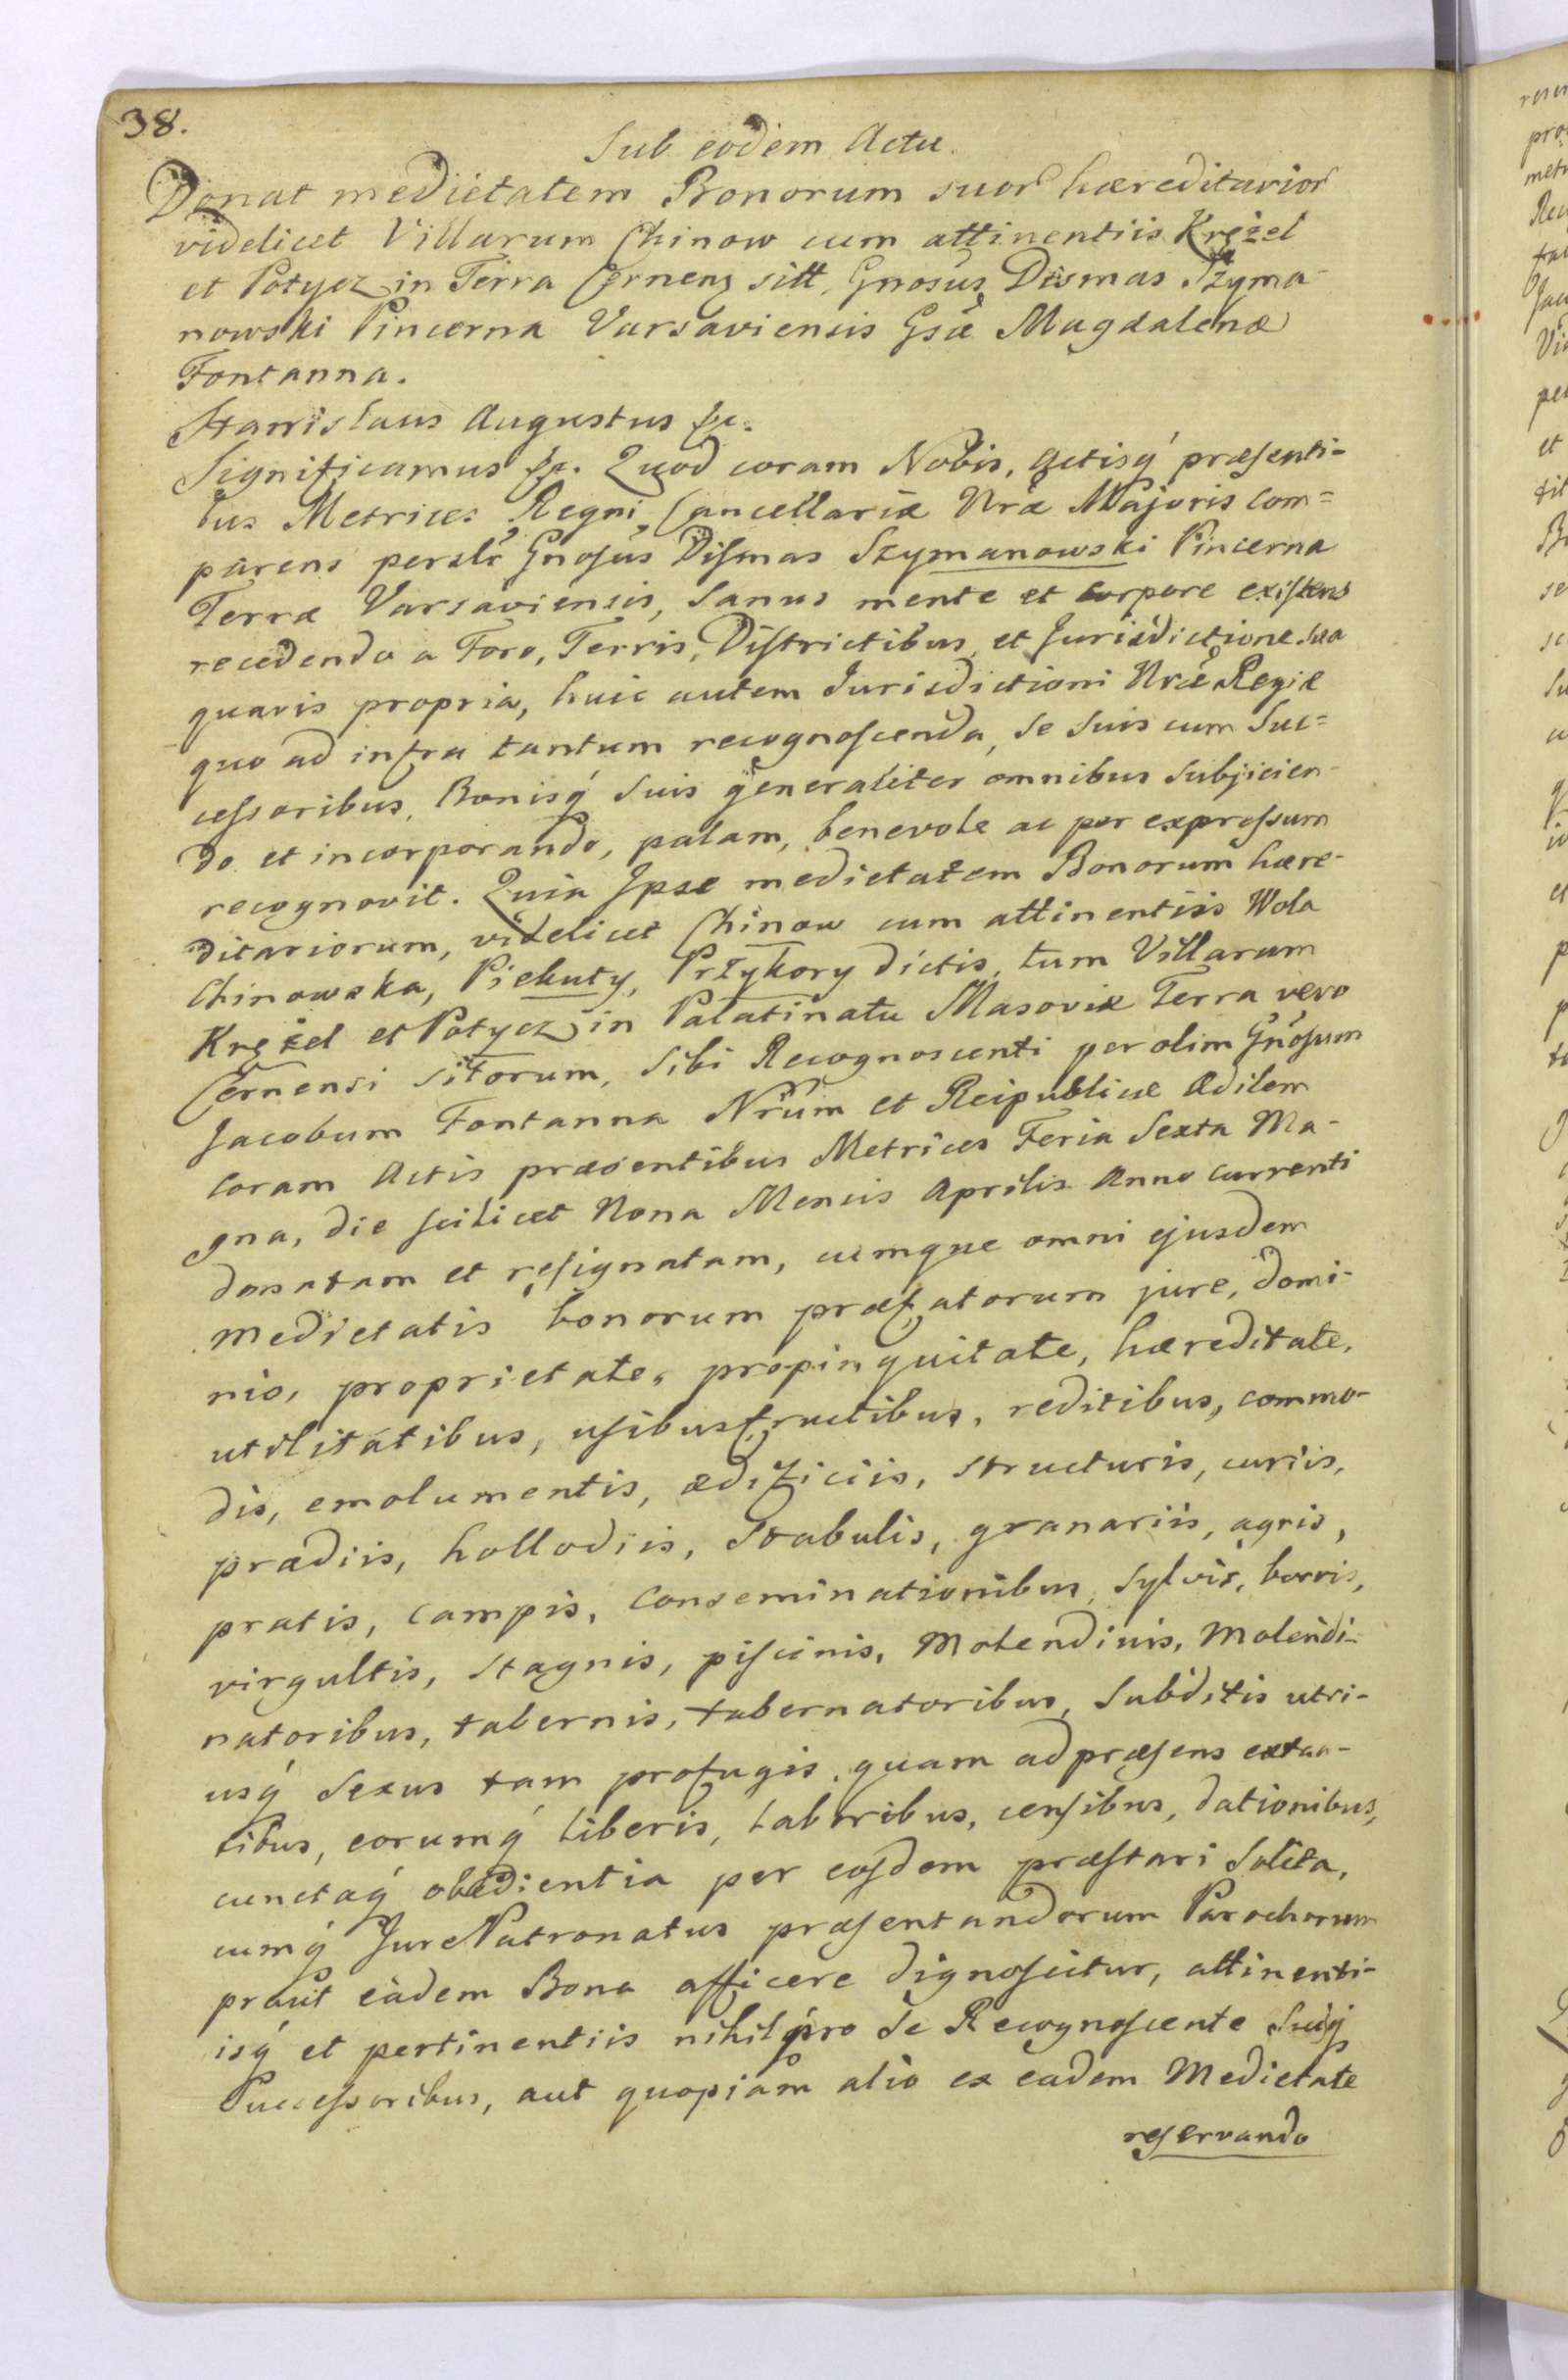 38.
Sub eodem Actu.
Donat medietatem Bonorum suor haereditarior
videlicet Villarum Chinow cum attinentiis Krężel
et Potycz in Terra Cernen sitt, Gnosus Dismas Szyma-
nowski Pincerna Varsaviensis Gsae Magdalenae
Fontanna.
Stanislaus Augustus &c.
Significamus &c. Quod coram Nobis, Actisq́ praesenti-
bus Metrices Regni Cancellariae Nrae Majoris com=
parens perslr Gnosus Dismas Szymanowski Pincerna
Terrae Varsaviensis, Sanus mente et corpore existens
recedendo a Foro, Terris, Districtibus, et Jurisdictione sua
quavis propria, huic autem Jurisdictioni Nrae Regiae
quo ad infra tantum recognoscenda, se suis cum Suc=
cessoribus, Bonisq́ suis generaliter omnibus subjicien-
do et incorporando, palam, benevole ac per expressum
recognovit. Quia Ipse medietatem Bonorum haere-
ditariorum, videlicet Chinow cum attinentiis Wola
Chinowska, Piekuty, Przykory dictis, tum Villarum
Krężel et Potycz in Palatinatu Masoviae Terra vero
Cernensi sitorum, sibi Recognoscenti per olim Gnosum
Jacobum Fontanna Nrum et Reipublicae Aedilem
Coram Actis praesentibus Metrices Feria Sexta Ma-
gna, die scilicet Nona Mensis Aprilis Anno currenti
donatam et resignatam, cumque omni ejusdem
medietatis bonorum praefatorum jure, domi-
nio, proprietate, propinquitate, haereditate,
utilitatibus, usibusfructibus, reditibus, commo-
dis, emolumentis, aedificiis, structuris, curiis,
praediis, hollodiis, stabulis, granariis, agris,
pratis, campis, conseminationibus, sylvis, borris,
virgultis, stagnis, piscinis, Molendinis, Molendi-
natoribus, tabernis, tabernatoribus, Subditis utri-
usq́ sexus tam profugis, quam ad praesens extan-
tibus, eorumq́ liberis, laboribus, censibus, dationibus,
cunctaq́ obedientia per eosdem praestari solita,
cumq́ Jure Patronatus praesentandorum Parochorum
prout eadem Bona afficere dignoscitur, attinenti-
isq́ et pertinentiis nihil pro se Recognoscente suisq́
Successoribus, aut quopiam alio ex eadem Medietate
reservando